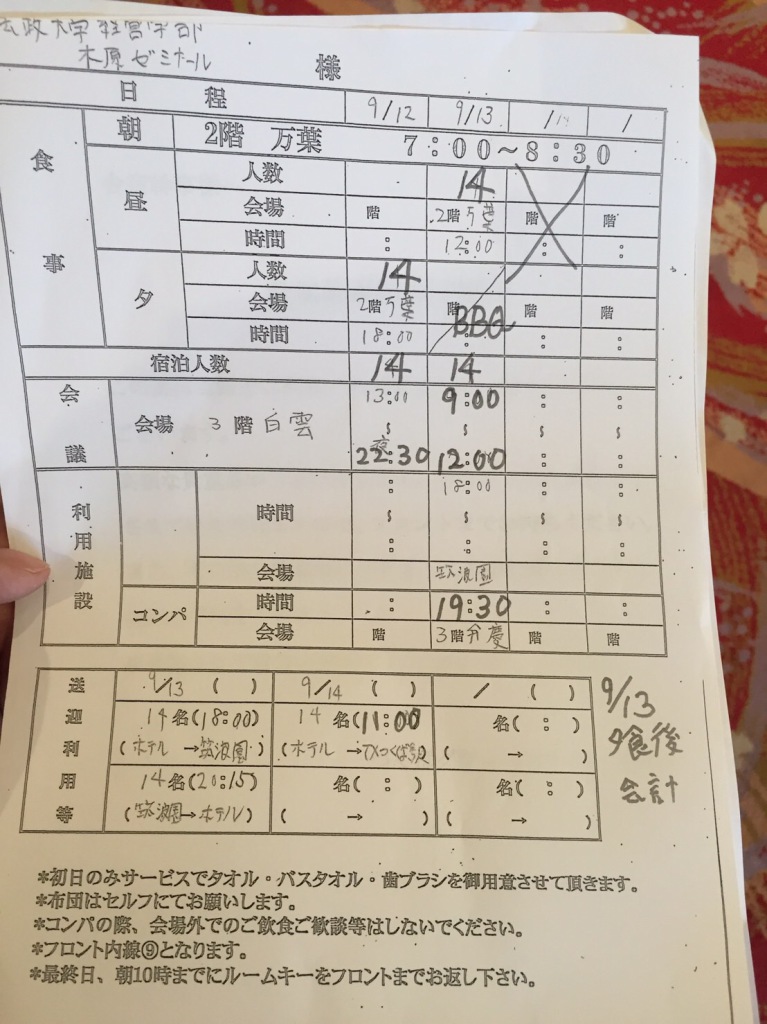 法政大学 経営学部
木原ゼミナール 様
日 程 9/12 9/13 /14 /
食事 朝 2階 万葉 7：00～8：30
昼 人数 14
会場 階 2階 万葉 階 階
時間 ： 12：00 ： ：
夕 人数 14
会場 2階 万葉 階 BBQ 階 階
時間 18：00 ： ： ：
宿泊人数 14 14
会議 会場 3階 白雲 13：00 9：00 ： ：
22：30 12：00 ： ：
利用施設 時間 ： 18：00 ： ：
： ： ： ：
会場 筑波園
コンパ 時間 ： 19：30 ： ：
会場 階 3階 弁慶 階 階
送迎利用等 9/13 ( ) 9/14 ( ) / ( )
14名(18：00) 14名(11：00) 名( ： )
(ホテル → 筑波園) (ホテル → TXつくば駅) ( → )
14名(20：15) 名( ： ) 名( ： )
(筑波園 → ホテル) ( → ) ( → )
9/13
夕食後
会計
*初日のみサービスでタオル・バスタオル・歯ブラシを御用意させて頂きます。
*布団はセルフにてお願いします。
*コンパの際、会場外でのご飲食ご歓談等はしないでください。
*フロント内線⑨となります。
*最終日、朝10時までにルームキーをフロントまでお返し下さい。